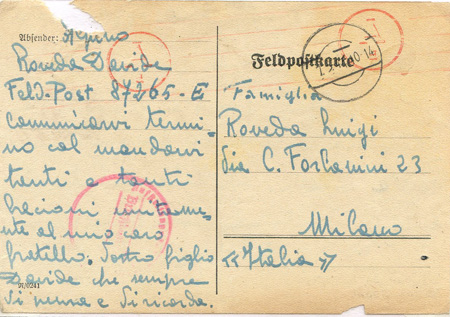 Absender: Alpino
Roveda Davide
Feld-Post 87265-E
comunicarvi termi-
no col mandarvi
tanti e tanti
bacioni unitame-
nte al mio caro
fratello. Vostro figlio
Davide che sempre
Vi pensa e Vi ricorda.
91/0241
Feldpostkarte
Famiglia
Roveda Luigi
Via C. Forlanini 23
Milano
«Italia»